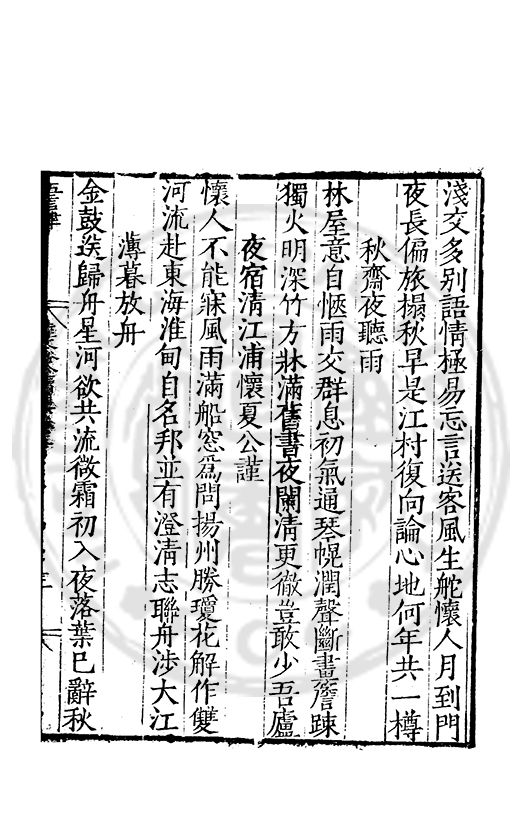 淺交多别語情極易忘言送客風生舵懷人月到門
夜長偏旅榻秋早是江村復向論心地何年共一樽
秋齋夜聽雨
林屋意自愜雨交群息初氣通琴幌潤聲斷畫簷踈
獨火明深竹方牀滿舊書夜闌淸更徹豈敢少吾廬
夜宿清江浦懷夏公謹
懷人不能寐風雨滿船窓爲問揚州勝瓊花解作雙
河流赴東海淮甸自名邦並有澄清志聯舟渉大江
薄暮放舟
金鼓送歸舟星河欲共流微霜初入夜落葉已辭秋
五言律